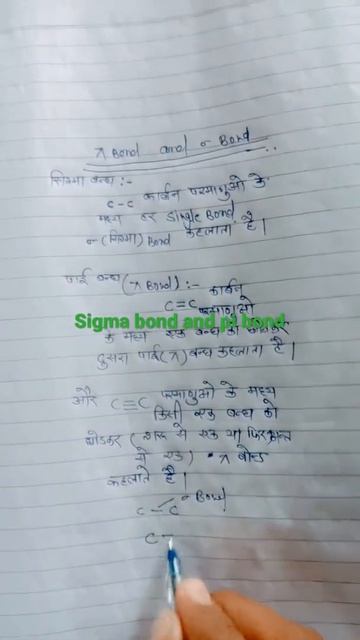 π Bond and σ Bond
सिग्मा बन्ध :-
C-C कार्बन परमाणुओ के
मध्य हर single Bond
σ (सिग्मा) Bond कहलाता है।
पाई बन्ध (π Bond) :- कार्बन
C=C परमाणुओ
Sigma bond and pi bond
के मध्य एक बन्ध को छोडकर
दुसरा पाई (π) बन्ध कहलाता है।
और C≡C परमाणुओ के मध्य
किसी एक बन्ध को
छोडकर
से एक) π बोन्ड
कहलाते है।
C-C σ Bond
C -